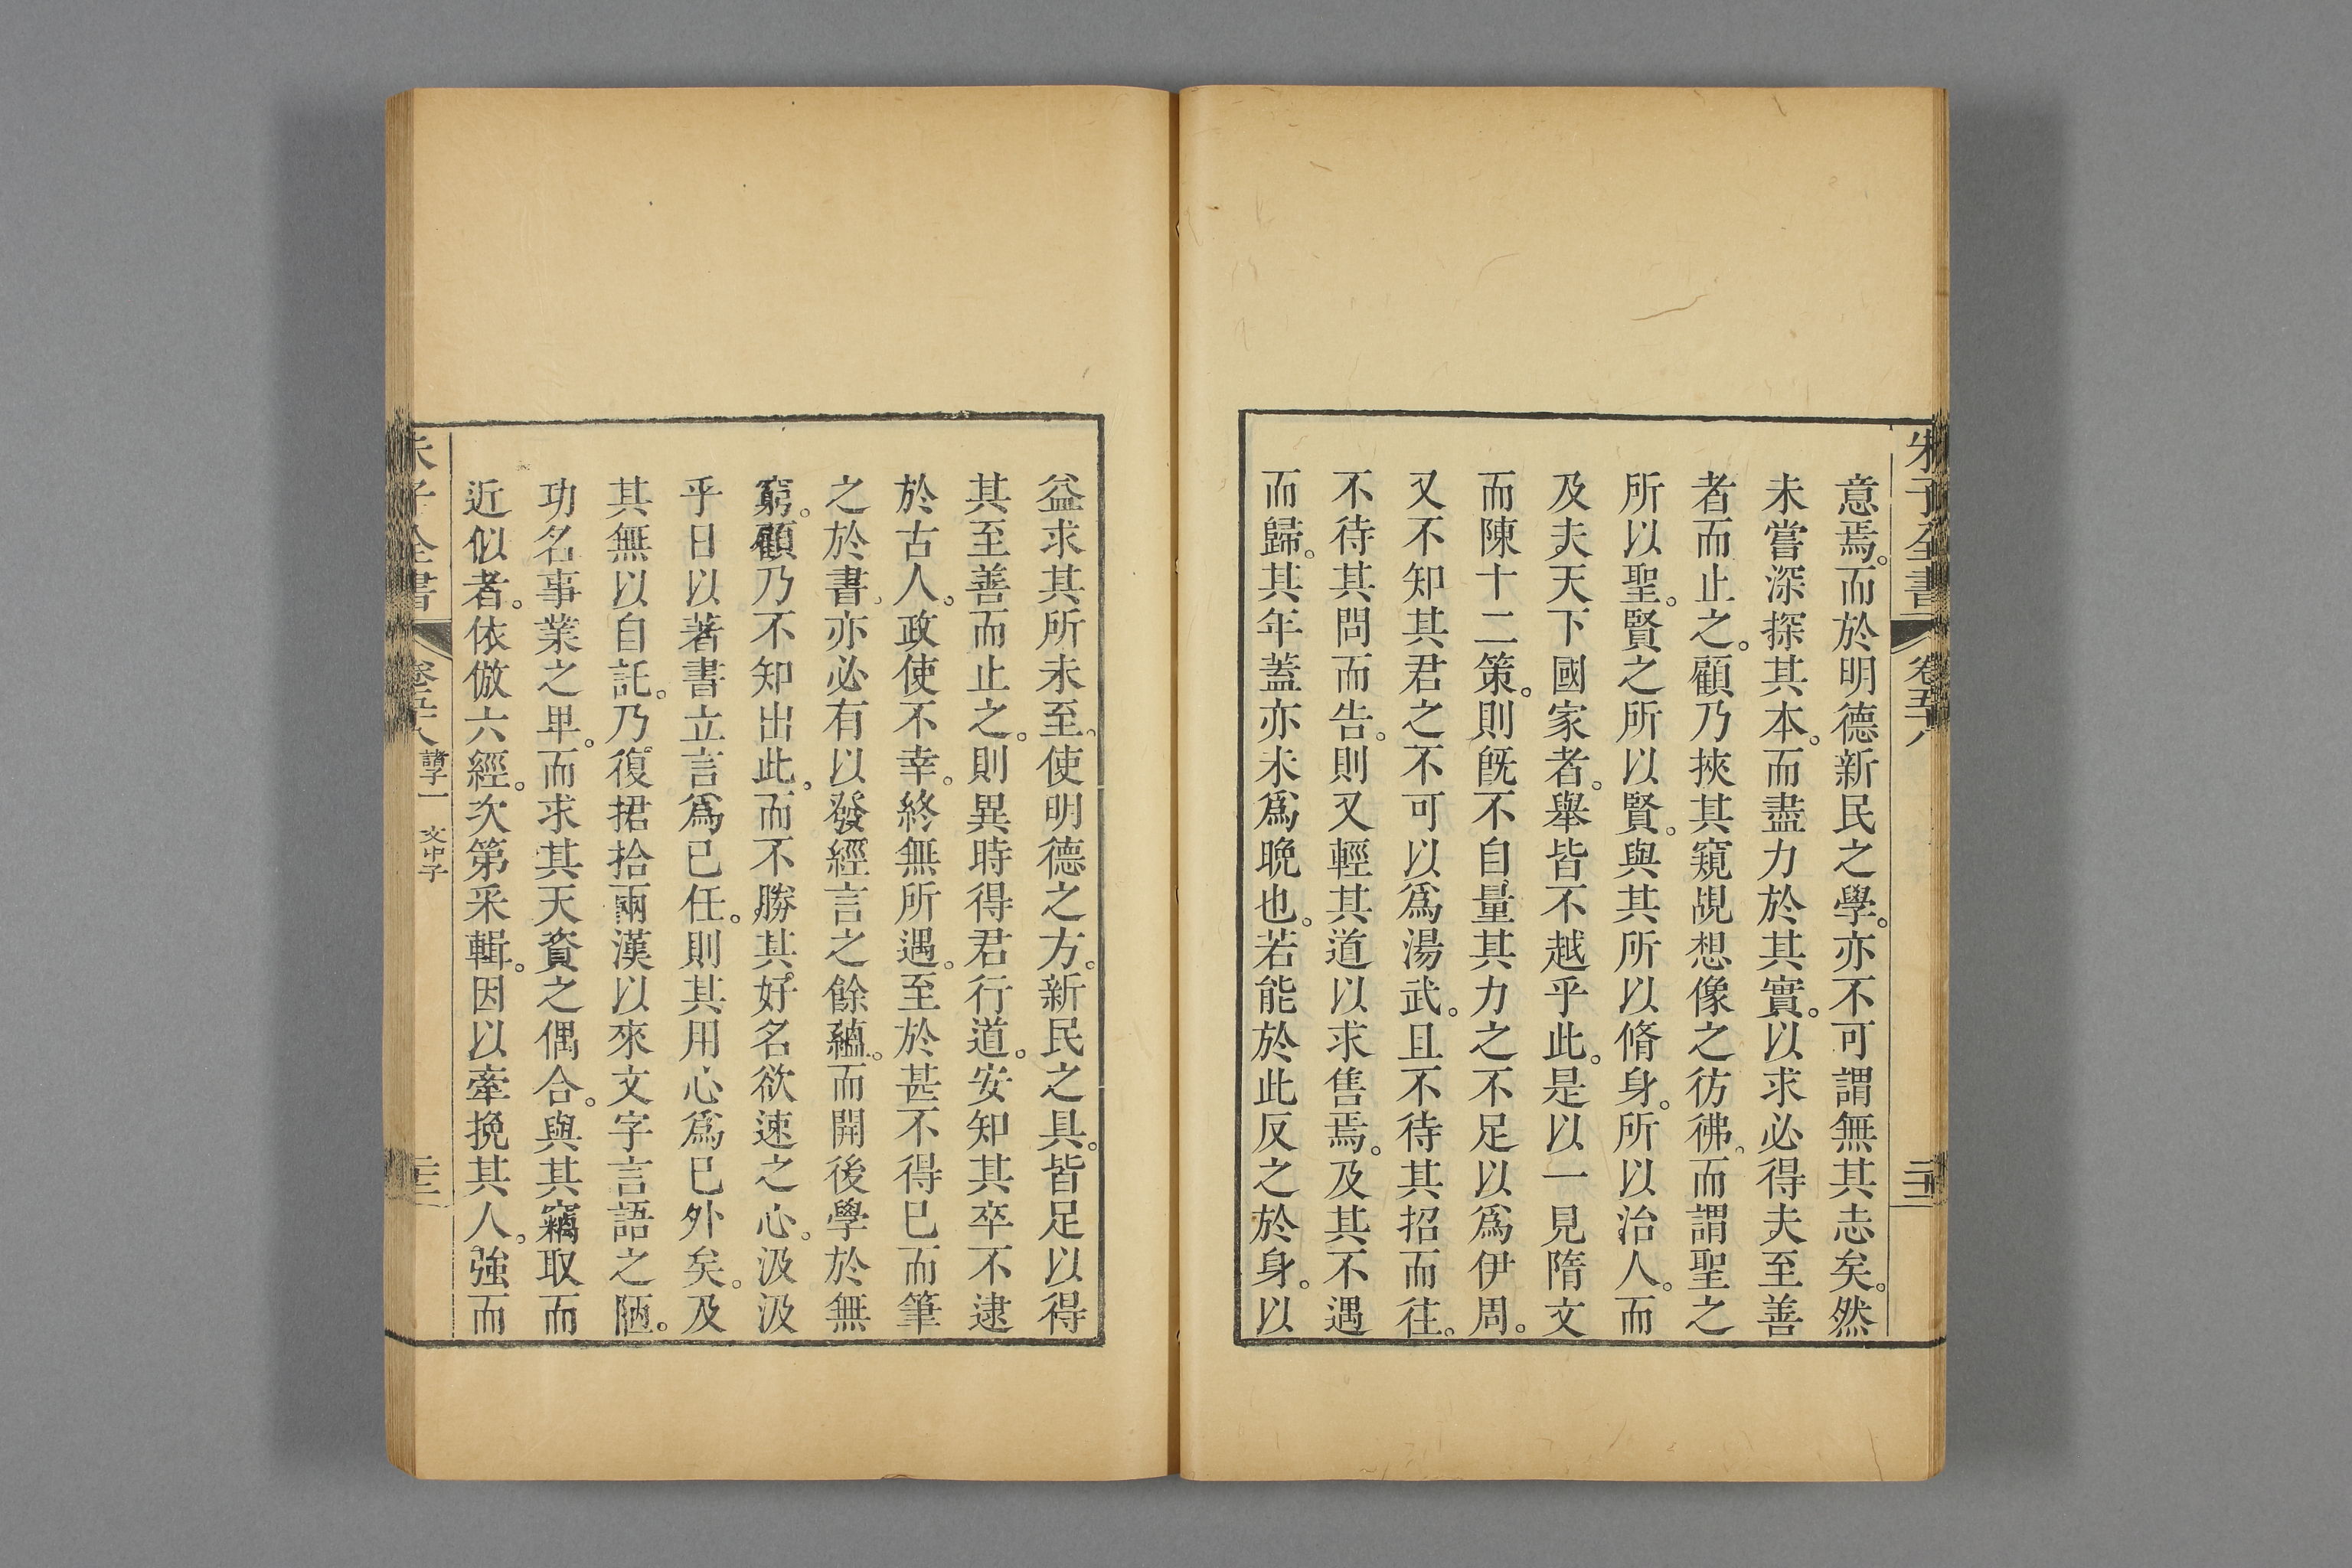 朱子全書
卷五十八
二十三
意焉。而於明德新民之學。亦不可謂無其志矣。然
未嘗深探其本。而盡力於其實。以求必得夫至善
者而止之。顧乃挾其窺覘想像之彷彿。而謂聖之
所以聖。賢之所以賢。與其所以脩身。所以治人。而
及夫天下國家者。舉皆不越乎此。是以一見隋文
而陳十二策。則旣不自量其力之不足以爲伊周。
又不知其君之不可以爲湯武。且不待其招而往。
不待其問而告。則又輕其道以求售焉。及其不遇
而歸。其年蓋亦未爲晚也。若能於此反之於身。以
益求其所未至。使明德之方。新民之具。皆足以得
其至善而止之。則異時得君行道。安知其卒不逮
於古人。政使不幸。終無所遇。至於甚不得已而筆
之於書。亦必有以發經言之餘蘊。而開後學於無
窮。顧乃不知出此。而不勝其好名欲速之心。汲汲
乎日以著書立言爲已任。則其用心爲已外矣。及
其無以自託。乃復捃拾兩漢以來文字言語之陋。
功名事業之卑。而求其天資之偶合。與其竊取而
近似者。依倣六經。次第采輯。因以牽挽其人。強而
朱子全書
卷五十八
諸子一 文中子
二十三